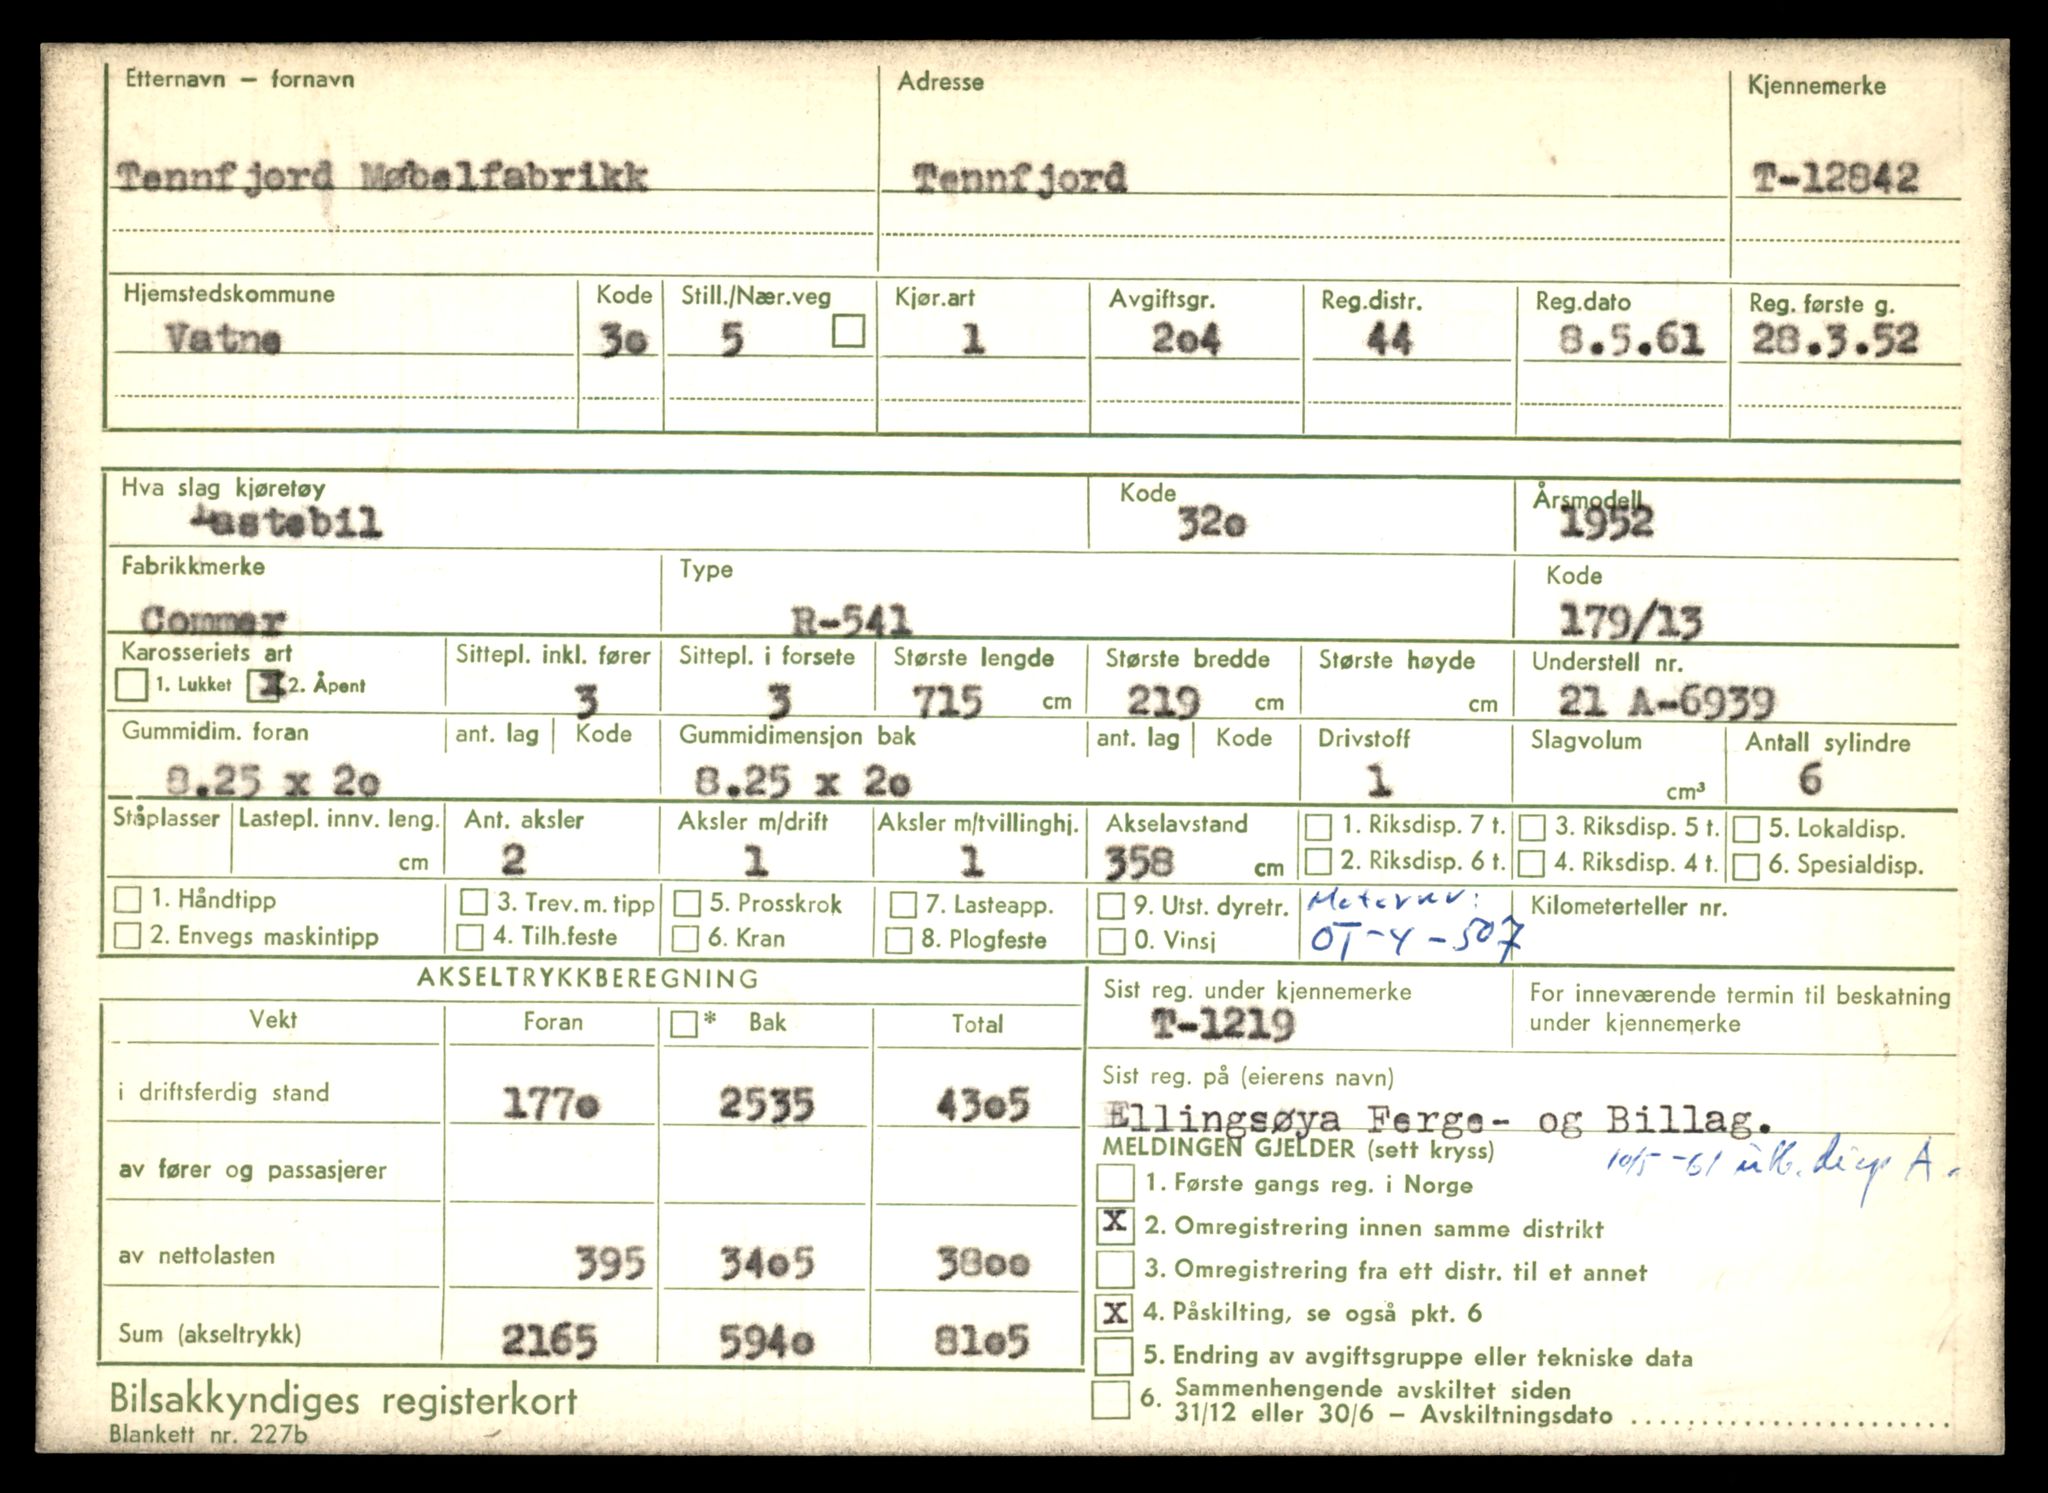 Etternavn – fornavn Adresse Kjennemerke
Tennfjord Møbelfabrikk Tennfjord T-12842
Hjemstedskommune Kode Still./Nær.veg Kjør.art Avgiftsgr. Reg.distr. Reg.dato Reg. første g.
Vatne 30 5 1 204 44 8.5.61 28.3.52
Hva slag kjøretøy Kode Årsmodell
Lastebil 320 1952
Fabrikkmerke Type Kode
Commer R-541 179/13
Karosseriets art Sittepl. inkl. fører Sittepl. i forsete Største lengde Største bredde Største høyde Understell nr.
1. Lukket X 2. Åpent 3 3 715 cm 219 cm cm 21 A-6939
Gummidim. foran ant. lag Kode Gummidimensjon bak ant. lag Kode Drivstoff Slagvolum Antall sylindre
8.25 x 20 8.25 x 20 1 cm³ 6
Ståplasser Lastepl. innv. leng. Ant. aksler Aksler m/drift Aksler m/tvillinghj. Akselavstand 1. Riksdisp. 7 t. 3. Riksdisp. 5 t. 5. Lokaldisp.
cm 2 1 1 358 cm 2. Riksdisp. 6 t. 4. Riksdisp. 4 t. 6. Spesialdisp.
1. Håndtipp 3. Trev. m. tipp 5. Prosskrok 7. Lasteapp. 9. Utst. dyretr. Motornr: Kilometerteller nr.
2. Envegs maskintipp 4. Tilh.feste 6. Kran 8. Plogfeste 0. Vinsj OT-4-507
AKSELTRYKKBEREGNING
Vekt Foran * Bak Total
i driftsferdig stand 1770 2535 4305
av fører og passasjerer
av nettolasten 395 3405 3800
Sum (akseltrykk) 2165 5940 8105
Sist reg. under kjennemerke For inneværende termin til beskatning
T-1219 under kjennemerke
Sist reg. på (eierens navn)
Ellingsøya Ferge- og Billag.
MELDINGEN GJELDER (sett kryss) 10/5-61 utb. disp A.
1. Første gangs reg. i Norge
X 2. Omregistrering innen samme distrikt
3. Omregistrering fra ett distr. til et annet
X 4. Påskilting, se også pkt. 6
5. Endring av avgiftsgruppe eller tekniske data
6. Sammenhengende avskiltet siden
31/12 eller 30/6 – Avskiltningsdato ........................
Bilsakkyndiges registerkort
Blankett nr. 227b